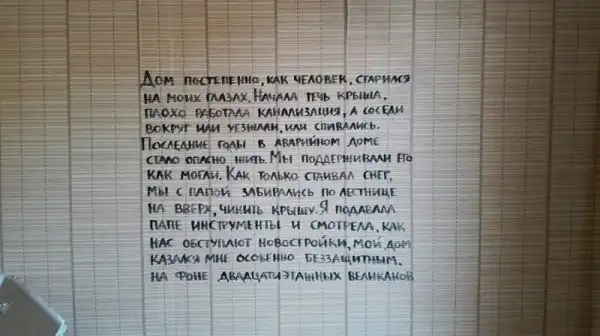 Дом постепенно, как человек, старился
на моих глазах. Начала течь крыша,
плохо работала канализация, а соседи
вокруг или уезжали, или спивались.
Последние годы в аварийном доме
стало опасно жить. Мы поддерживали его
как могли. Как только стаивал снег,
мы с папой забирались по лестнице
на вверх, чинить крышу. Я подавала
папе инструменты и смотрела, как
нас обступают новостройки, мой дом
казался мне особенно беззащитным.
на фоне двадцатиэтажных великанов